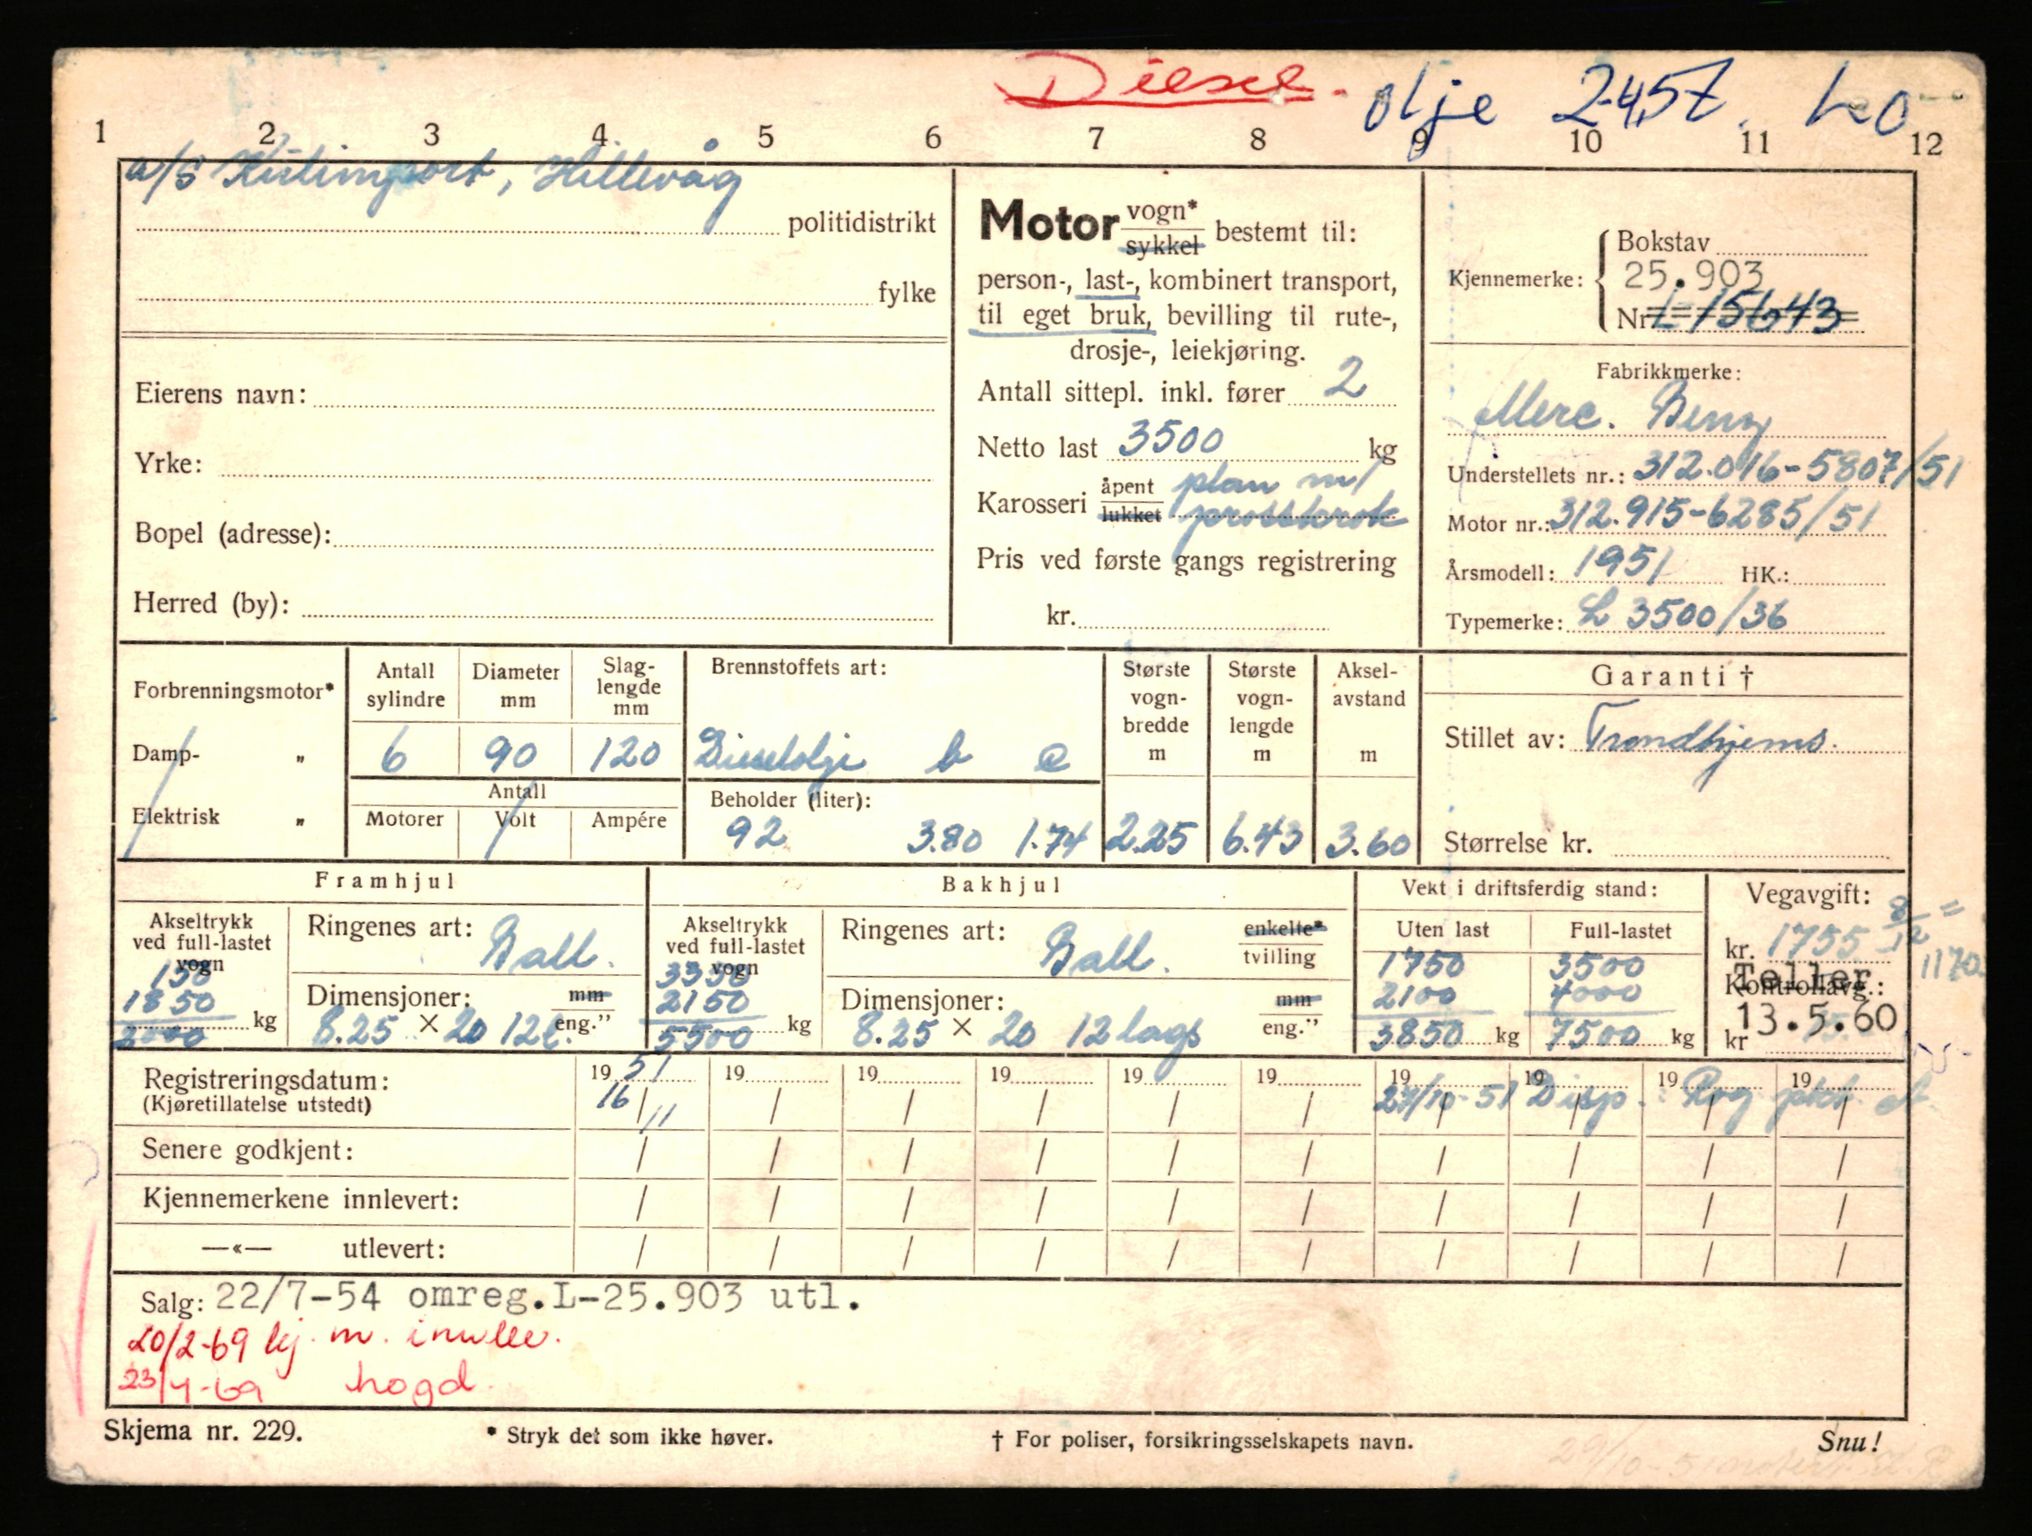 Diesel. olje 2457. Lo
1 2 3 4 5 6 7 8 9 10 11 12
a/s Kulimport, Hillevåg
politidistrikt
fylke
Eierens navn:
Yrke:
Bopel (adresse):
Herred (by):
Motor vogn* sykkel bestemt til:
person-, last-, kombinert transport,
til eget bruk, bevilling til rute-,
drosje-, leiekjøring.
Antall sittepl. inkl. fører 2
Netto last 3500 kg
Karosseri åpent lukket plan m/
Pris ved første gangs registrering
kr.
Kjennemerke: Bokstav
25.903
Nr. L-15643
Fabrikkmerke:
Merc. Benz
Understellets nr.: 312.016-5807/51
Motor nr.: 312.915-6285/51
Årsmodell: 1951 HK.:
Typemerke: L 3500/36
Forbrenningsmotor*
Damp- „
Elektrisk „
Antall sylindre
6
Diameter mm
90
Slag-lengde mm
120
Antall
Motorer Volt Ampére
Brennstoffets art:
Dieselolje b c
Beholder (liter):
92 3.80 1.74
Største vogn-bredde m
2.25
Største vogn-lengde m
6.43
Aksel-avstand m
3.60
Garanti †
Stillet av: Trondhjems.
Størrelse kr.
Framhjul
Akseltrykk ved full-lastet vogn
150
1850
2000 kg
Ringenes art: Ball.
Dimensjoner: mm eng."
8.25 × 20 12 l.
Bakhjul
Akseltrykk ved full-lastet vogn
3350
2150
5500 kg
Ringenes art: Ball. enkelte* tvilling
Dimensjoner: mm eng."
8.25 × 20 12 lags
Vekt i driftsferdig stand:
Uten last Full-lastet
1750 3500
2100 4000
3850 kg 7500 kg
Vegavgift:
kr. 1755 8/12 =
1170
Teller
Kontrollavg.:
13.5.60
kr
Registreringsdatum: 1951 19 19 19 19 19 19 19 19 19
(Kjøretillatelse utstedt) 16/11 / / / / / 27/10-51 Disp. Rog
Senere godkjent: / / / / / / / / / /
Kjennemerkene innlevert: / / / / / / / / / /
—«— utlevert: / / / / / / / / / /
Salg: 22/7-54 omreg.L-25.903 utl.
20/2-69
23/4-69 hogd.
Skjema nr. 229. * Stryk det som ikke høver. † For poliser, forsikringsselskapets navn. Snu!